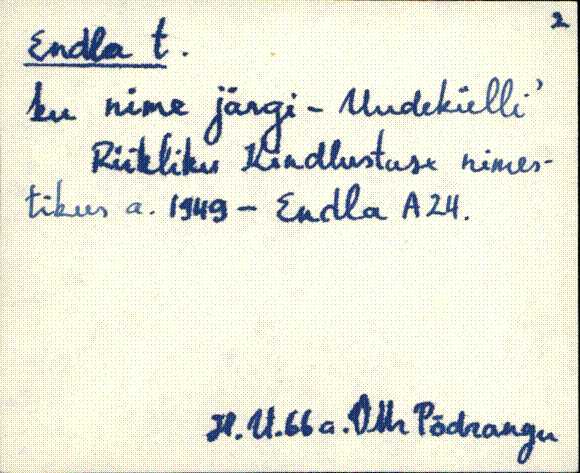 2
Endla t.
ku nime järgi – Uudeküelli'
Riikliku Kindlustuse nimes-
tikus a. 1949 – Endla A24.
H. U. 66 a. Põdrangu